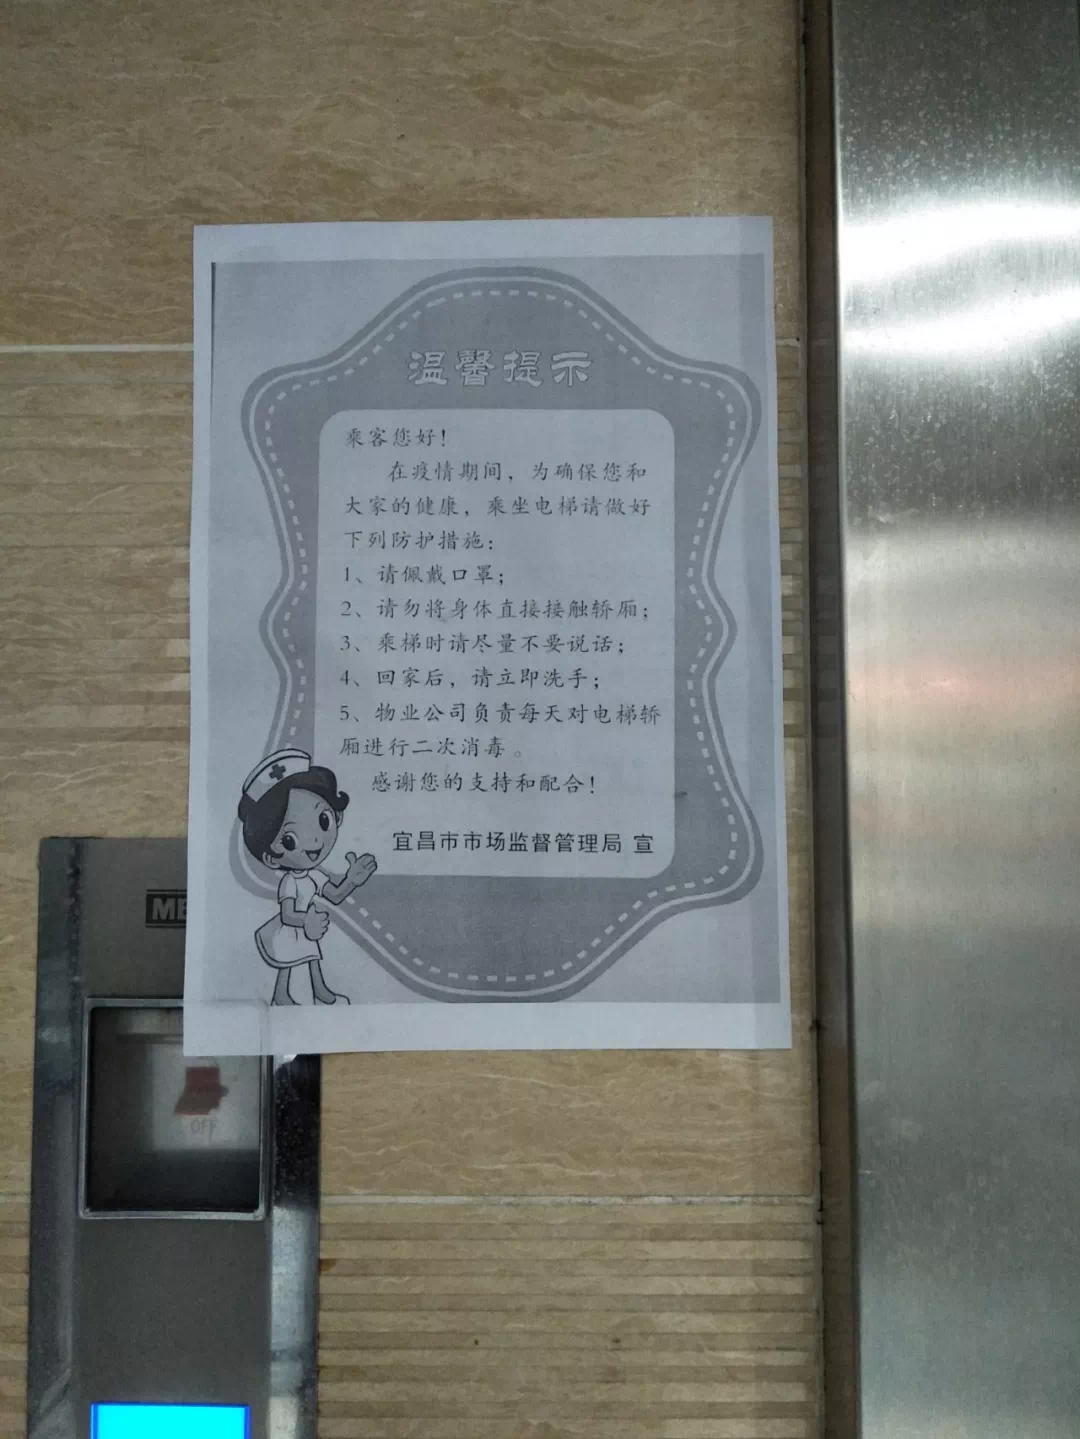 温馨提示
乘客您好！
在疫情期间，为确保您和
大家的健康，乘坐电梯请做好
下列防护措施：
1、请佩戴口罩；
2、请勿将身体直接接触轿厢；
3、乘梯时请尽量不要说话；
4、回家后，请立即洗手；
5、物业公司负责每天对电梯轿
厢进行二次消毒。
感谢您的支持和配合！
宜昌市市场监督管理局 宣
OFF